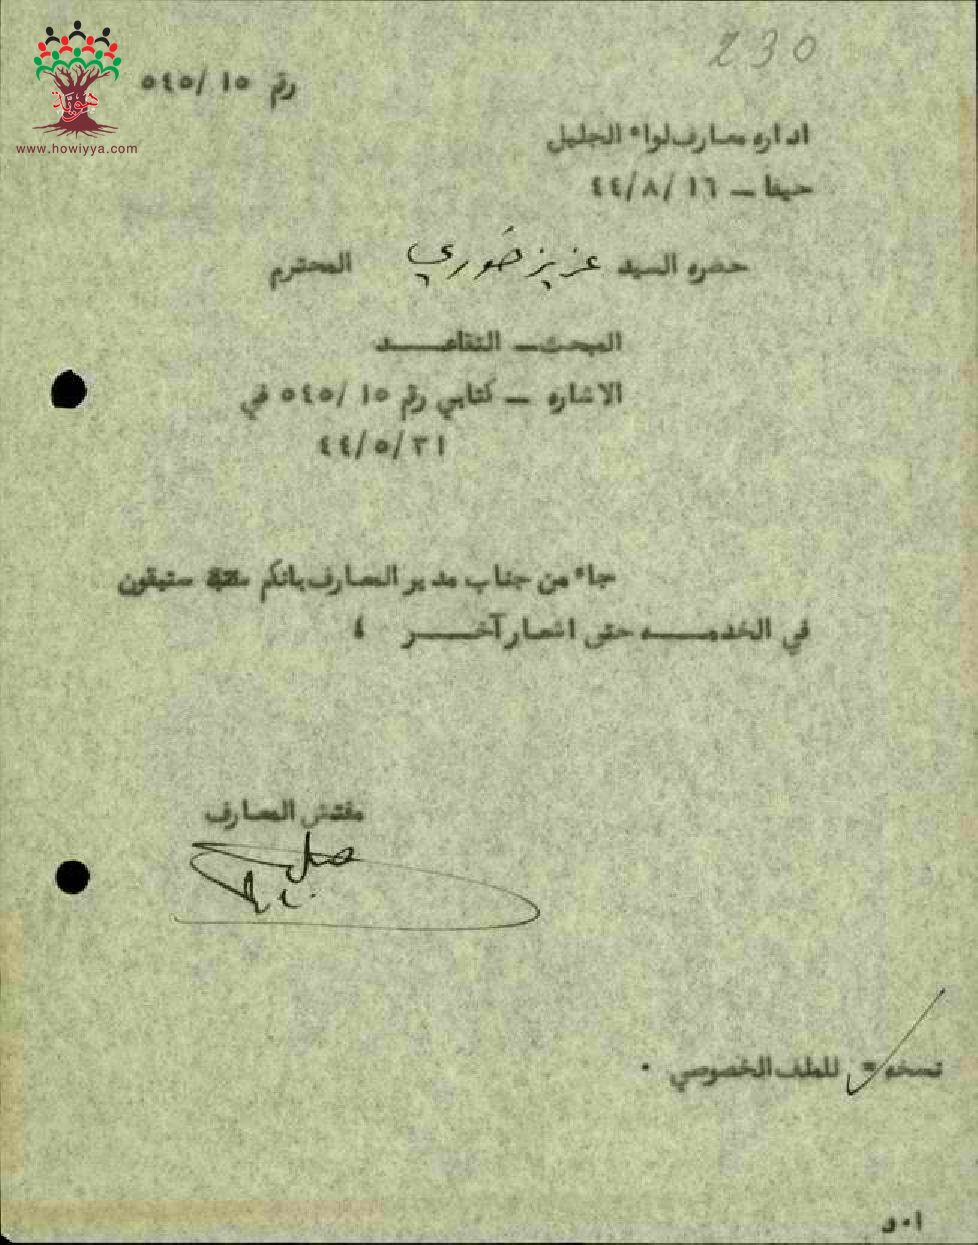 230
هوية
www.howiyya.com
رقم ١٥ /٥٤٥
اداره معارف لواء الجليل
حيفا – ١٦ /٨/٤٤
حضره السيد عزيز خوري المحترم
المبحث – التقاعد
الاشاره – كتابي رقم ١٥ /٥٤٥ في
٣١/٥/٤٤
جاء من جناب مدير المعارف بانكم ستبقون
في الخدمه حتى اشعار آخر ؛
مفتش المعارف
نسخه = للملف الخصوصي ٠